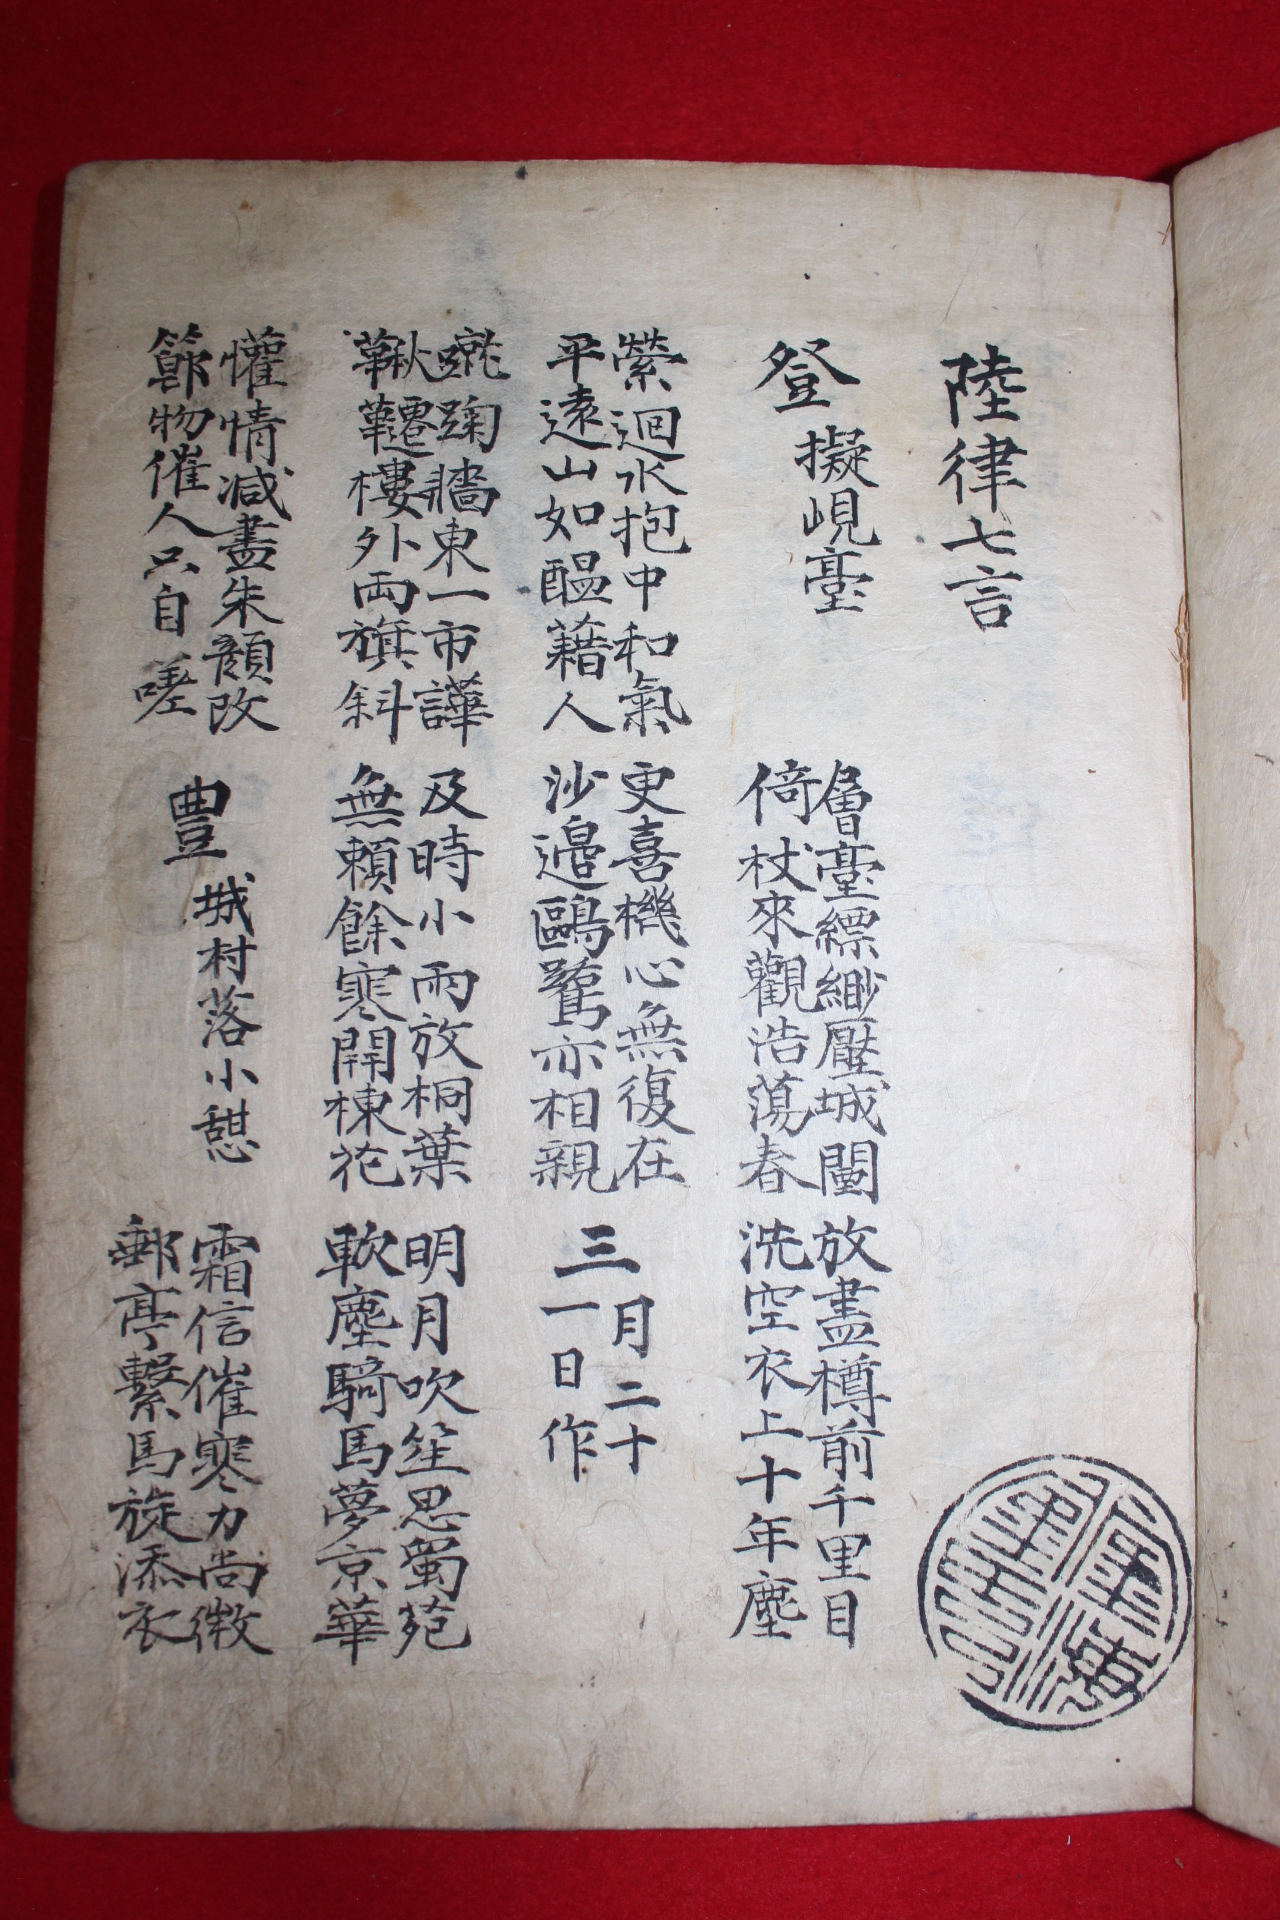 陸律七言
登擬峴臺
層臺縹緲壓城闉
倚杖來觀浩蕩春
放盡樽前千里目
洗空衣上十年塵
縈迴水抱中和氣
平遠山如醞藉人
更喜機心無復在
沙邊鷗鷺亦相親
三月二十
一日作
蹴踘牆東一市譁
鞦韆樓外兩旗斜
及時小雨放桐葉
無賴餘寒開棟花
明月吹笙思蜀苑
軟塵騎馬夢京華
懽情减盡朱顔改
節物催人只自嗟
豊城村落小憇
霜信催寒力尚微
郵亭繫馬旋添衣